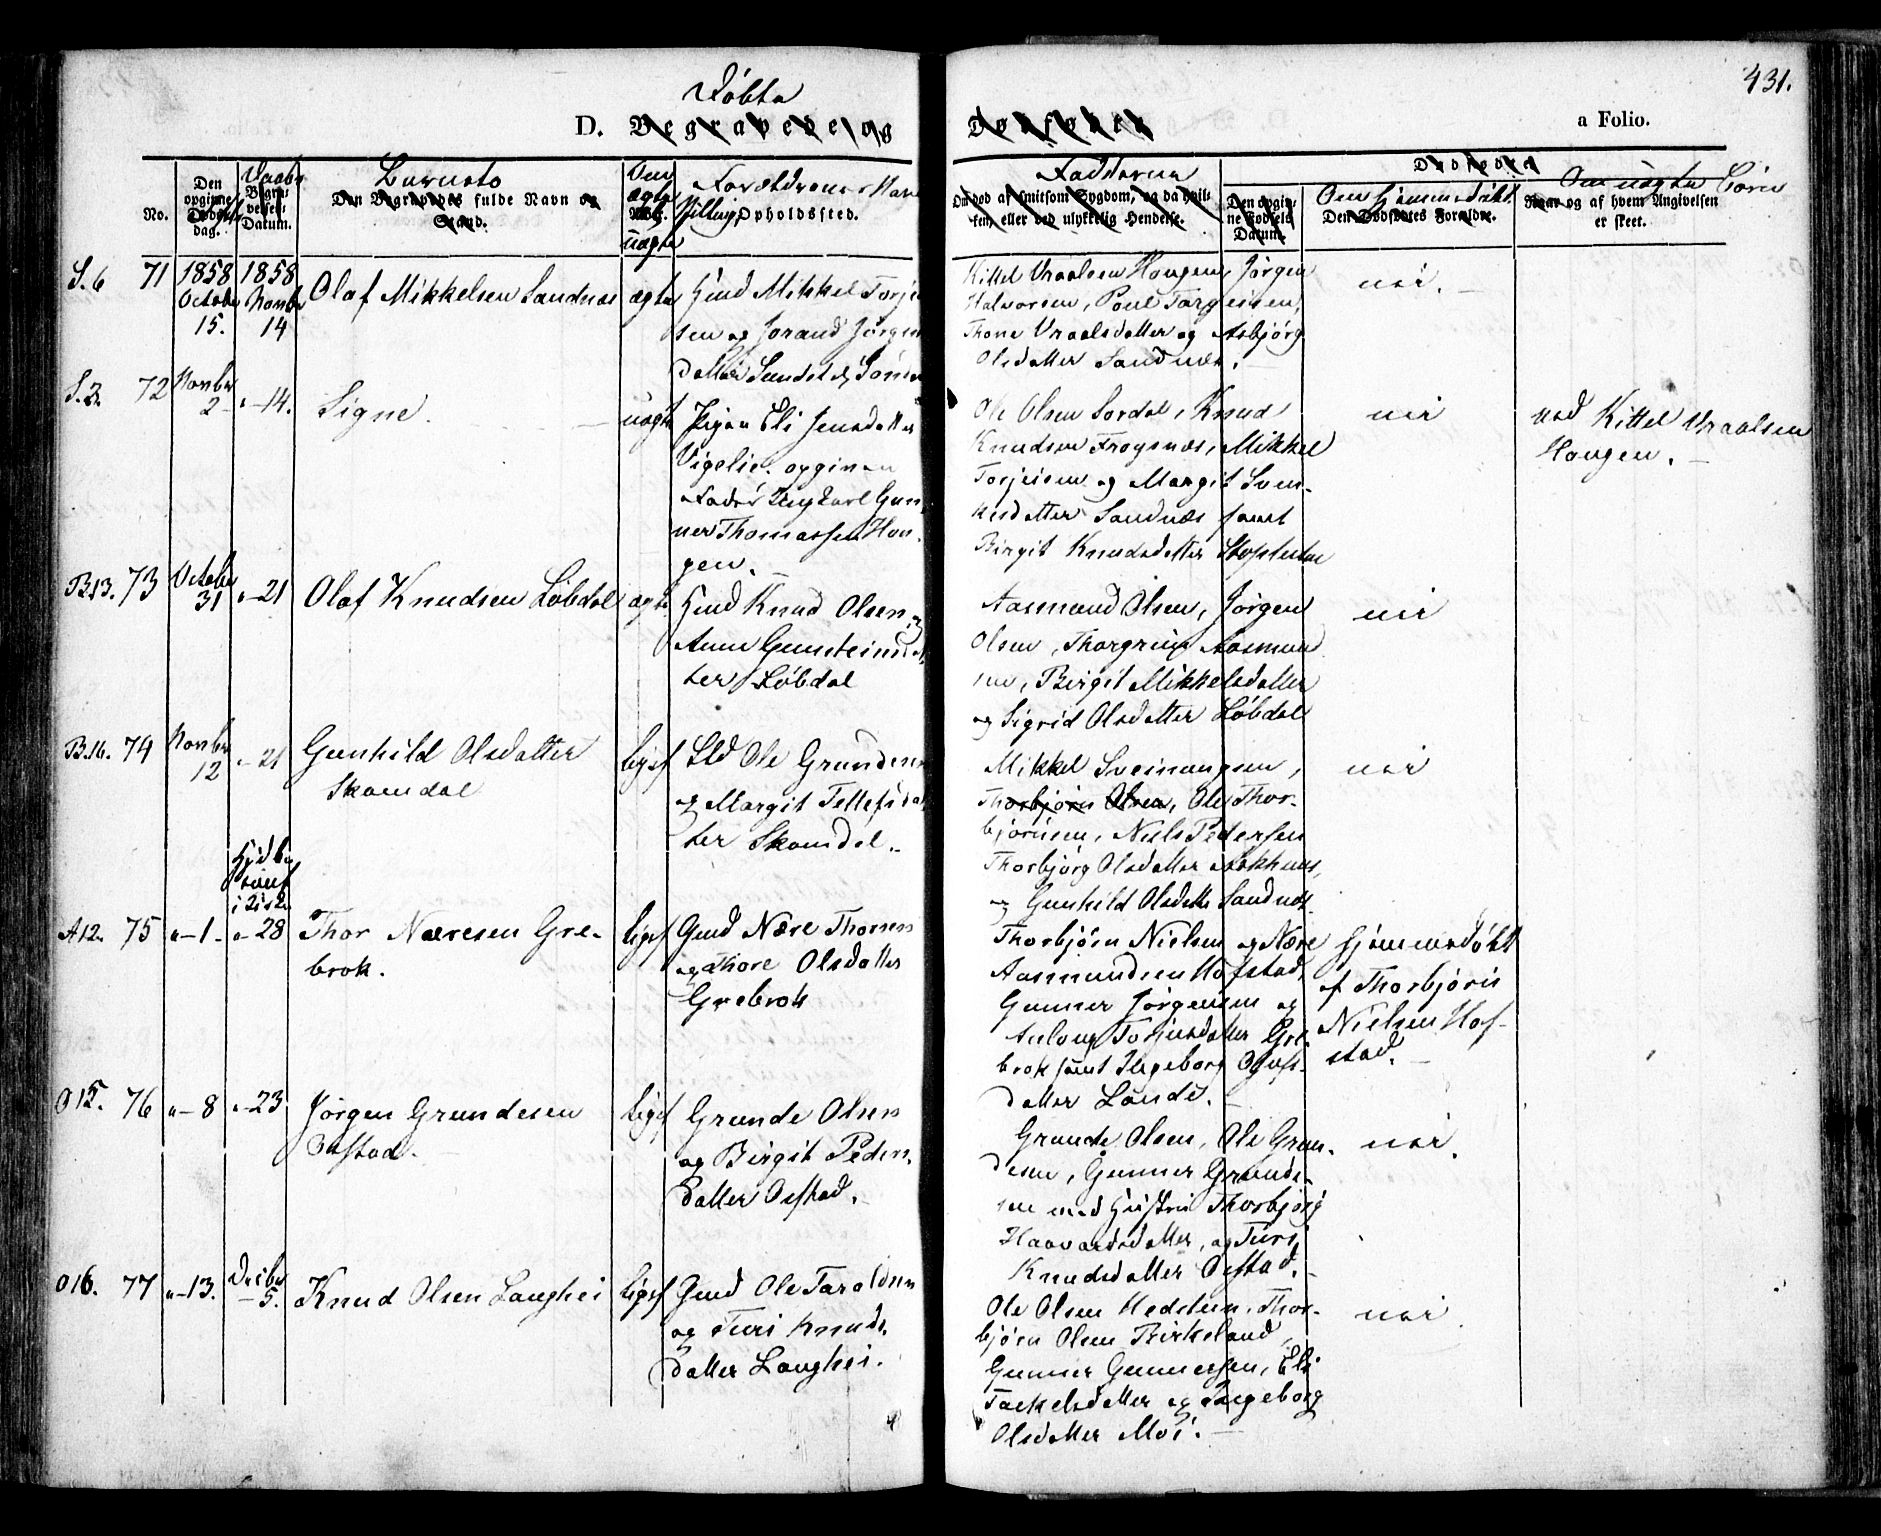 431.
Döbte
D. Begravede og Dødfødte
a Folio.
No.
Den opgivne Døds-dag.
Daabs
Begravelses-Datum.
Barnets
Den Begravedes fulde Navn og Stand.
Om ægte
uægte
Forældrenes Navn
Stilling, Opholdssted.
Fadderne
Om død af smitsom Sygdom, og da hvilken, eller ved ulykkelig Hendelse.
Dødfødte
Den opgivne Fødsels Datum.
Om hjemmedøbt
Den Dødfødtes Forældre.
Om uægte Börn
Naar og af hvem Angivelsen er skeet.
S. 6 71 1858 October 15. 1858 Novbr 14
Olaf Mikkelsen Sandnæs
ægte
Gmd Mikkel Torjei
sen og Jorand Jörgens
datter Sandnes
Kittel Vraalsen Haugen, Jörgen
Halvorsen, Poul Targeisen,
Thone Vraalsdatter og Asbjørg
Olsdatter Sandnæs.
nei.
S. 2. 72 Novbr 2 " 14.
Signe.
uægte
Pigen Eli Jensdatter
Vigelie. opgiven
Fader Ungkarl Gun
ner Thomassen Hou
gen.
Ole Olsen Sordal, Knud
Knudsen Froysnæs, Mikkel
Torjeisen og Margit Sven-
kesdatter Sandnæs samt
Birgit Knudsdatter
nei
ved Kittel Vraalsen
Hougen.
B13. 73 October 31 " 21
Olaf Knudsen Löbdal
ægte
Gmd Knud Olsen og
Anne Gunsteinsdat
ter Löbdal
Aasmund Olsen, Jörgen
Olsen, Thorgrim Aasmund
sen, Birgit Mikkelsdatter
og Sigrid Olsdatter Löbdal
nei
B.16. 74 Novbr 12 " 21
Gunhild Olsdatter
Skomdal
ligs
Ole Grundesen
og Margit Tellefsdat
ter Skomdal.
Mikkel Sveinungsen,
Thorbjörn Olsen, Ole Thor-
björnsen, Niels Pedersen
Thorbjörg Olsdatter
og Gunhild Olsdatter Sandnæs.
nei
A12. 75 " 1. " 28
Thor Næresen Gre-
brok.
ligs
Gmd Nære Thorsen
og Thore Olsdatter
Grebrok
Thorbjörn Nielsen og Nære
Aasmundsen Hofstad,
Gunner Jörgensen og
Asloug Torjusdatter Gre
brok samt Ingeborg Olufs-
datter Lande.
hjemmedöbt
af Thorbjörn
Nielsen Hof-
stad.
O15. 76 " 8 " 23
Jörgen Grundesen
Ostad.
ligs
Grunde Olsen
og Birgit Peders
datter Ostad.
Grunde Olsen, Ole Grun-
desen, Gunner Grunde-
sen med Hustru Thorbjörg
Haavardsdatter, og Turi
Knudsdatter Ostad.
nei.
O16. 77 " 13. Decbr 5.
Knud Olsen Langhei
ligs
Gmd Ole Taraldsen
og Turi Knuds
datter Langhei.
Ole Olsen Hedstein, Thor-
björn Olsen Birkeland,
Gunner Gunnersen, Eli
Taskelsdatter og Ingeborg
Olsdatter Moi.
nei